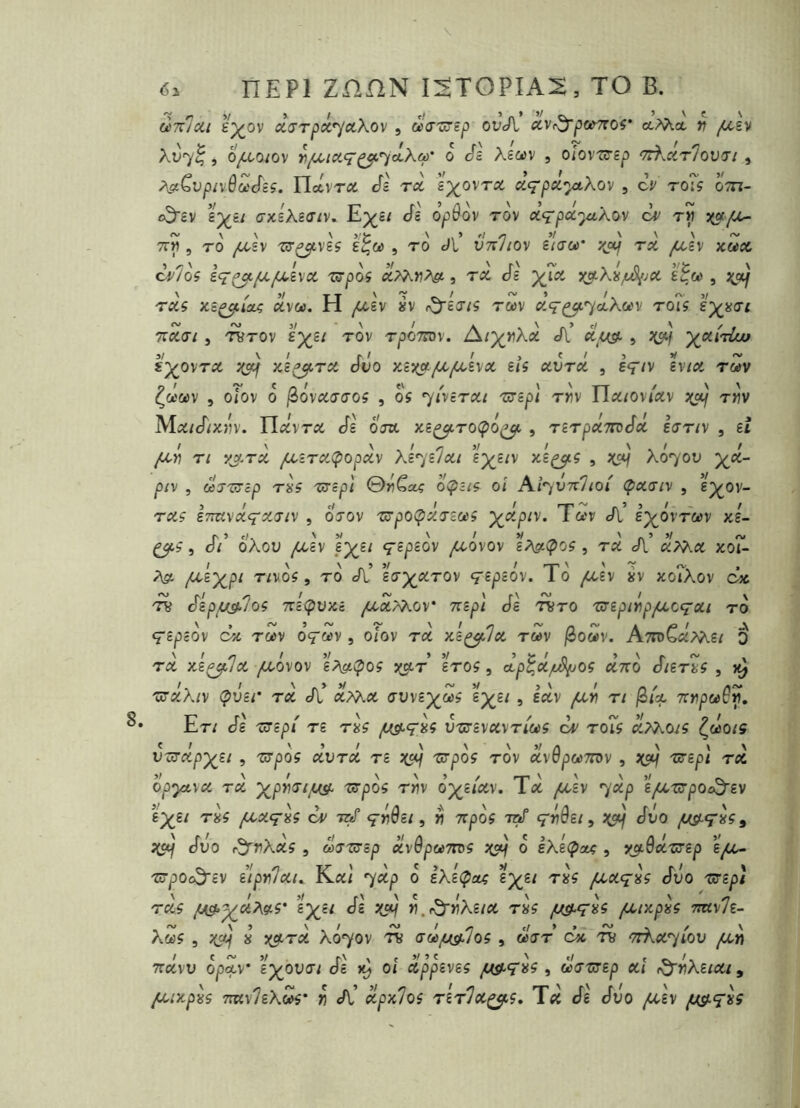 62 ΠΕΡΙ ΖΩΩΝ ΙΣΤΟΡΙΑΣ, ΤΟ Β.
ὦπ]αι ἔχον ἀστράγαλον, ὥσπερ οὐδ' ἄνθρωπος· ἀλλὰ ἡ μὲν
λὺγξ, ὅμοιον ἡμιαστραγάλῳ· ὁ δὲ λέων, οἷονπερ πλάττουσι,
λαβυρινθώδες. Πάντα δὲ τὰ ἔχοντα ἀστράγαλον, ἐν τοῖς ὄπι-
σθεν ἔχει σκέλεσιν. Ἔχει δὲ ὀρθὸν τὸν ἀστράγαλον ἐν τῇ καμ-
πῇ, τὸ μὲν πρανὲς ἔξω, τὸ δ' ὕπτιον εἴσω· καὶ τὰ μὲν κῶα
ἐντὸς ἐστραμμένα πρὸς ἄλληλα, τὰ δὲ χῖα καλούμενα ἔξω, καὶ
τὰς κεραίας ἄνω. Ἡ μὲν οὖν θέσις τῶν ἀστραγάλων τοῖς ἔχουσι
πᾶσι, τοῦτον ἔχει τὸν τρόπον. Διχηλὰ δ' ἅμα, καὶ χαίτην
ἔχοντα καὶ κέρατα δύο κεκαμμένα εἰς αὑτὰ, ἐστὶν ἔνια τῶν
ζώων, οἷον ὁ βόνασσος, ὃς γίνεται περὶ τὴν Παιονίαν καὶ τὴν
Μαιδικήν. Πάντα δὲ ὅσα κερατοφόρα, τετράποδά ἐστιν, εἰ
μή τι κατὰ μεταφορὰν λέγεται ἔχειν κέρας, καὶ λόγου χά-
ριν, ὥσπερ τοὺς περὶ Θήβας ὄφεις οἱ Αἰγύπτιοί φασιν, ἔχον-
τας ἐπανάστασιν, ὅσον προφάσεως χάριν. Τῶν δ' ἐχόντων κέ-
ρας, δι' ὅλου μὲν ἔχει στερεὸν μόνον ἔλαφος, τὰ δ' ἄλλα κοῖ-
λα μέχρι τινὸς, τὸ δ' ἔσχατον στερεόν. Τὸ μὲν οὖν κοῖλον ἐκ
τοῦ δέρματος πέφυκε μᾶλλον· περὶ δὲ τοῦτο περιήρμοσται τὸ
στερεὸν ἐκ τῶν ὀστῶν, οἷον τὰ κέρατα τῶν βοῶν. Ἀποβάλλει δὲ
τὰ κέρατα μόνον ἔλαφος κατ' ἔτος, ἀρξάμενος ἀπὸ διετοῦς, καὶ
πάλιν φύει· τὰ δ' ἄλλα συνεχῶς ἔχει, ἐὰν μή τι βίᾳ πηρωθῇ.
8. Ἔτι δὲ περί τε τοὺς μαστοὺς ὑπεναντίως ἐν τοῖς ἄλλοις ζώοις
ὑπάρχει, πρὸς αὑτά τε καὶ πρὸς τὸν ἄνθρωπον, καὶ περὶ τὰ
ὄργανα τὰ χρήσιμα πρὸς τὴν ὀχείαν. Τὰ μὲν γὰρ ἔμπροσθεν
ἔχει τοὺς μαστοὺς ἐν τῷ στήθει, ἢ πρὸς τῷ στήθει, καὶ δύο μαστοὺς,
καὶ δύο θηλὰς, ὥσπερ ἄνθρωπος καὶ ὁ ἐλέφας, καθάπερ ἔμ-
προσθεν εἴρηται. Καὶ γὰρ ὁ ἐλέφας ἔχει τοὺς μαστοὺς δύο περὶ
τὰς μασχάλας· ἔχει δὲ καὶ ἡ θήλεια τοὺς μαστοὺς μικροὺς παντε-
λῶς, καὶ οὐ κατὰ λόγον τοῦ σώματος, ὥστ' ἐκ τοῦ πλαγίου μὴ
πάνυ ὁρᾷν· ἔχουσι δὲ καὶ οἱ ἄρρενες μαστοὺς, ὥσπερ αἱ θήλειαι,
μικροὺς παντελῶς· ἡ δ' ἄρκτος τέτταρας. Τὰ δὲ δύο μὲν μαστοὺς